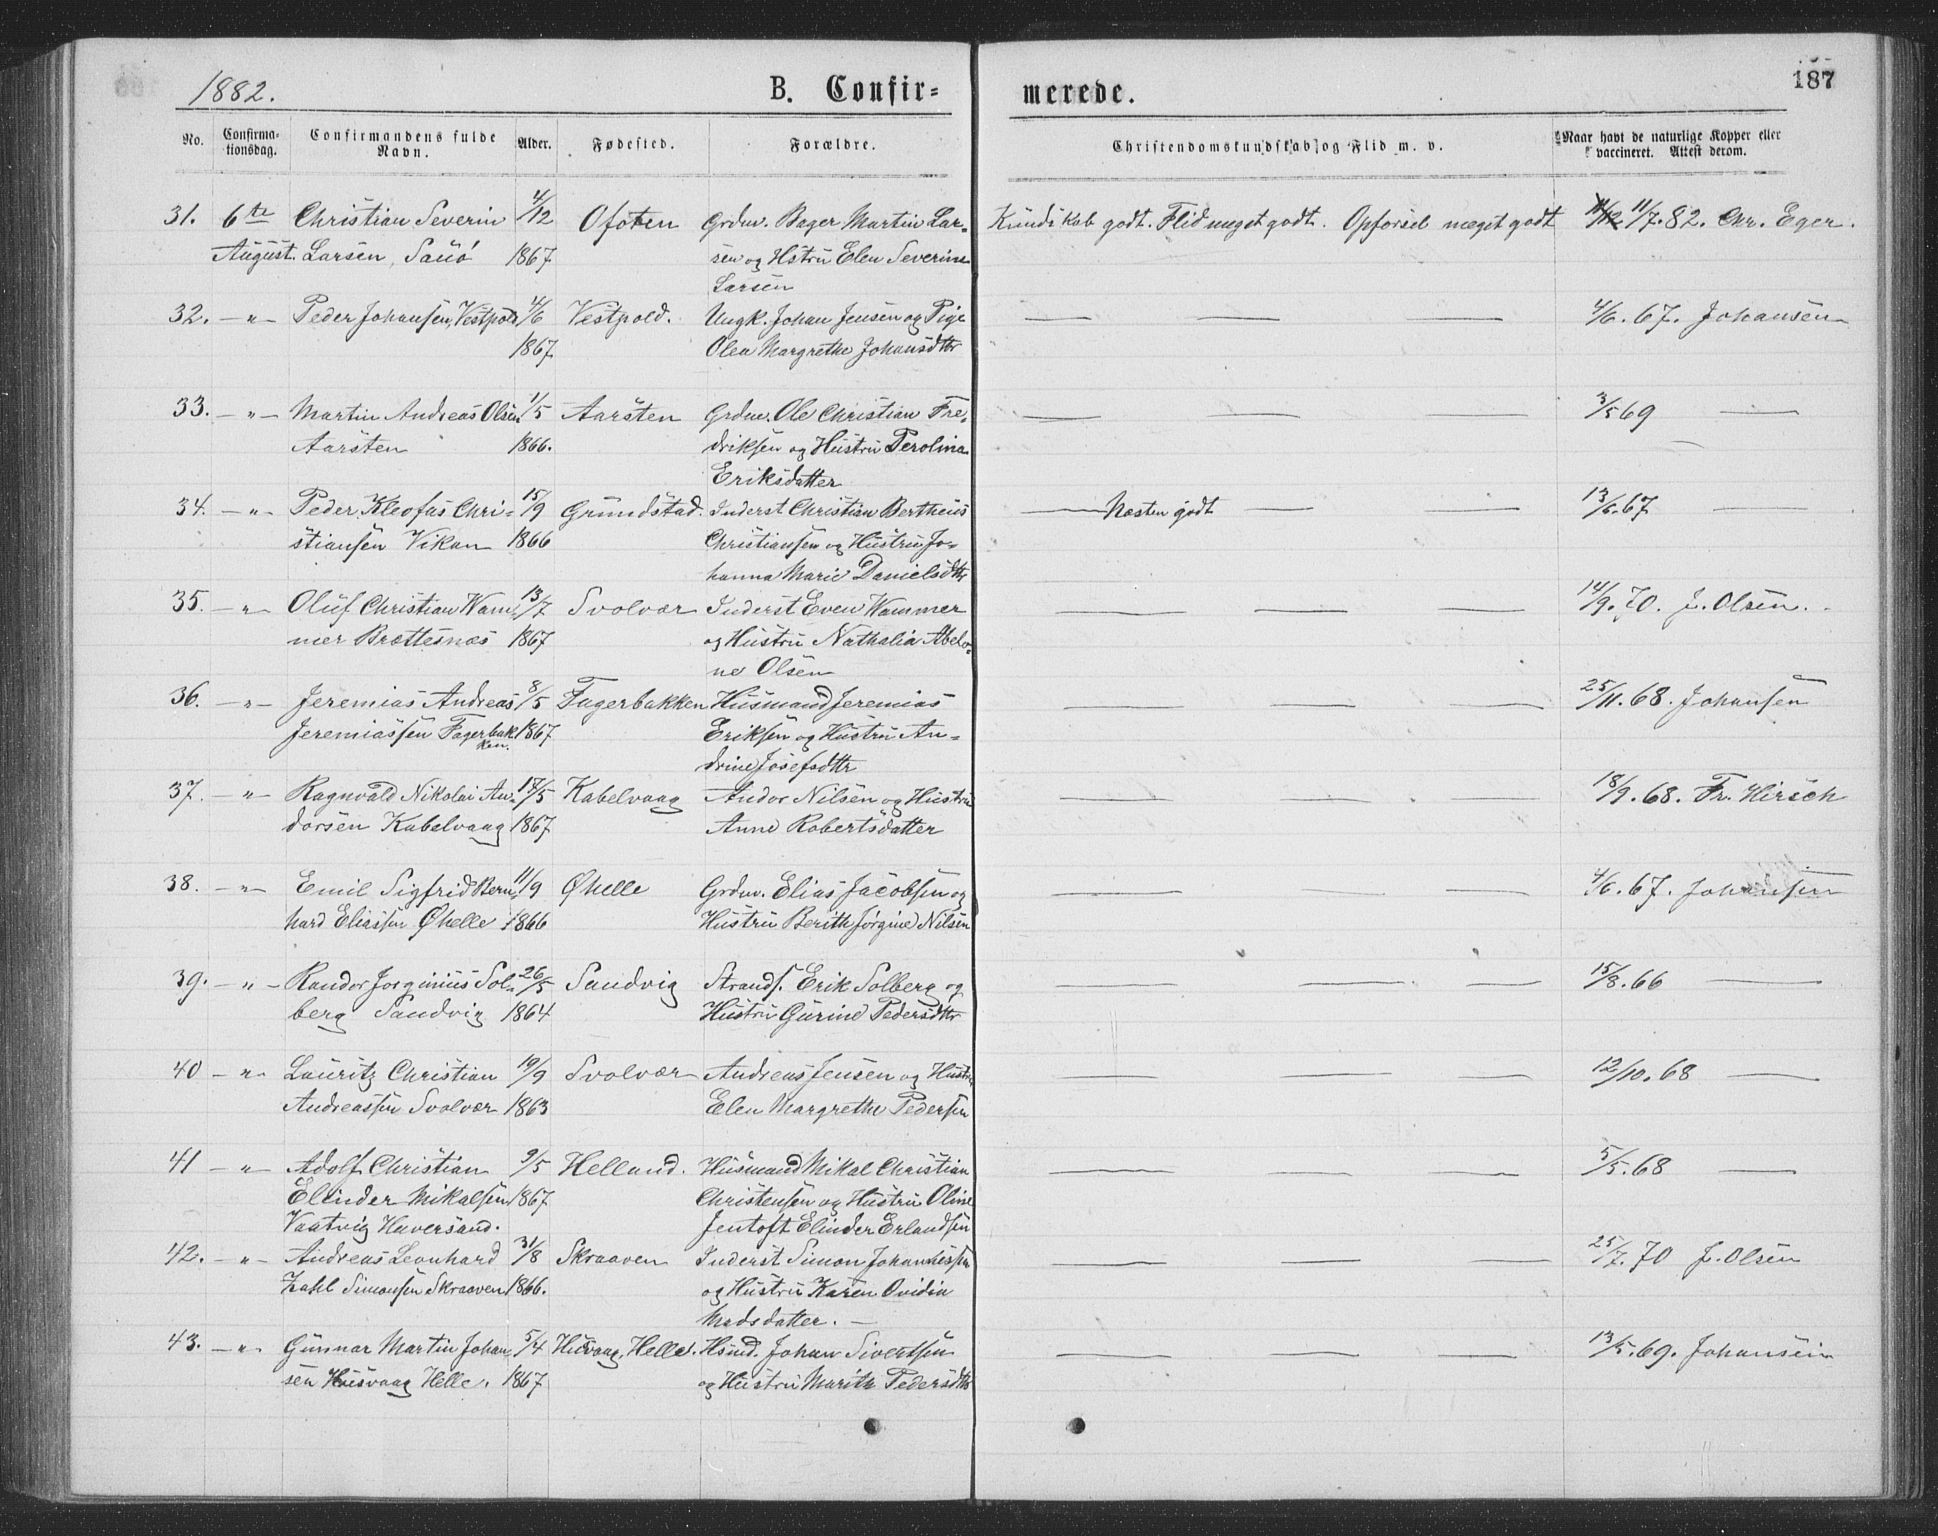 1882.
B. Confir=
merede.
187
No.
Confirma-
tionsdag.
Confirmandens fulde
Navn.
Alder.
Fødested.
Forældre.
Christendomskundskab og Flid m. v.
Naar havt de naturlige Kopper eller
vaccineret. Attest derom.
31. 6te Christian Severin 4/12 Ofoten Grdm. Bager Martin Lar- Kundskab godt. Flid meget godt. Opførsel meget godt 11/7. 82. Chr. Eger.
August. Larsen, Sauø 1867 sen og Hstru Elen Severine
Larsen
32. — " — Peder Johansen, Vestpold 4/6 Vestpold. Ungk. Johan Jensen og Pige — — — 4/6. 67. Johansen
1867. Olea Margrethe Johansdttr
33. — " — Martin Andreas Olsen 1/5 Aarsten Grdm. Ole Christian Fre- — — — 3/5 69 —
Aarsten 1866. driksen og Hustru Perolina
Eriksdatter
34. — " — Peder Kleofas Chri- 15/9 Grundstad. Inderst Christian Bertheus — Næsten godt — — 13/6. 67 —
stiansen Vikan 1866 Christiansen og Hustru Jo-
hanna Marie Danielsdttr
35. — " — Oluf Christian Wam- 13/7 Svolvær Inderst Even Wammer — — — 14/9. 70. J. Olsen.
mer Brættesnæs 1867 og Hustru Nathalia Abelo-
ne Olsen
36. — " — Jeremias Andreas 8/5 Fagerbakken Husmand Jeremias — — — 25/11. 68. Johansen
Jeremiassen Fagerbak- 1867 Eriksen og Hustru An-
ken. drine Josefsdttr
37. — " — Ragnvald Nikolai An- 17/5 Kabelvaag Andor Nilsen og Hustru — — — 18/9. 68. Fr. Hirsch
dorsen Kabelvaag 1867 Anne Robertsdatter
38. — " — Emil Sigfrid Bern- 11/9 Øhelle Grdm. Elias Jacobsen og — — — 4/6. 67. Johansen
hard Eliassen Øhelle 1866 Hustru Berith Jørgine Nilsen
39. — " — Randor Jorginius Sol- 26/5 Sandvig Strands. Erik Solberg og — — — 15/8. 66 —
berg Sandvig 1864 Hustru Gurine Pedersdttr
40 — " — Lauritz Christian 19/9 Svolvær Andreas Jensen og Hustru — — — 12/10. 68 —
Andreassen Svolvær 1863 Elen Margrethe Pedersen
41 — " — Adolf Christian 9/5 Helland. Husmand Mikal Christian — — — 5/5. 68 —
Elinder Mikalsen 1867 Christensen og Hustru Oline
Vaatvig Haversand. Jentoft Elinder Erlandsen
42. — " — Andreas Leonhard 31/8 Skraaven Inderst Simon Johannessen — — — 25/7. 70 J. Olsen
Zahl Simonsen Skraaven 1866. og Hustru Karen Ovidia
Madsdatter. —
43. — " — Gunnar Martin Johan- 5/4 Husvaag, Helle. Hsmd. Johan Sivertsen — — — 13/5. 69. Johansen
sen Husvaag Helle. 1867 og Hustru Marith Pedersdttr